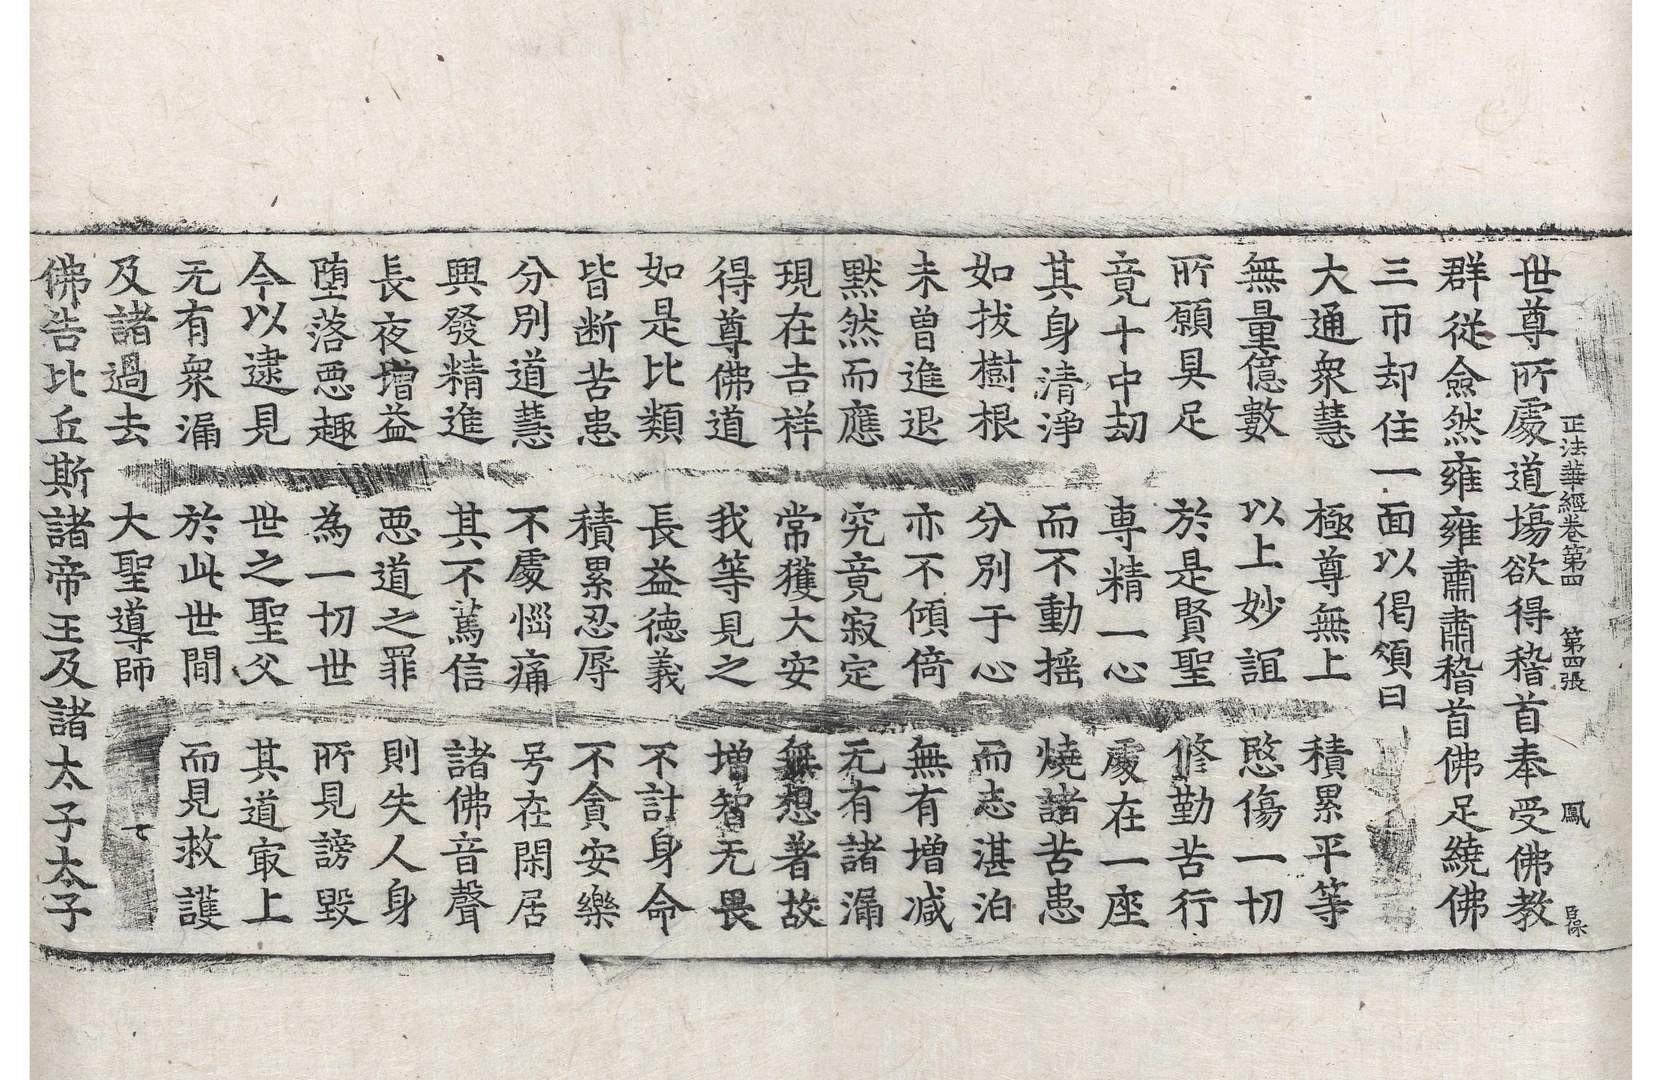 正法華經卷第四　第四張　鳳　臣保
世尊所處道場欲得稽首奉受佛教
群從僉然雍雍肅肅稽首佛足繞佛
三帀却住一面以偈頌曰
大通衆慧　極尊無上　積累平等
無量億數　以上妙誼　愍傷一切
所願具足　於是賢聖　修勤苦行
竟十中劫　専精一心　處在一座
其身清淨　而不動揺　燒諸苦患
如拔樹根　分別于心　而志湛泊
未曾進退　亦不傾倚　無有增減
默然而應　究竟寂定　无有諸漏
現在吉祥　常獲大安　無想著故
得尊佛道　我等見之　增智无畏
如是比類　長益德義　不計身命
皆断苦患　積累忍辱　不貪安樂
分別道慧　不處惱痛　号在閑居
興發精進　其不篤信　諸佛音聲
長夜增益　惡道之罪　則失人身
堕落惡趣　為一切世　所見謗毀
今以逮見　世之聖父　其道冣上
无有衆漏　於此世間　而見救護
及諸過去　大聖導師
佛告比丘斯諸帝王及諸太子太子